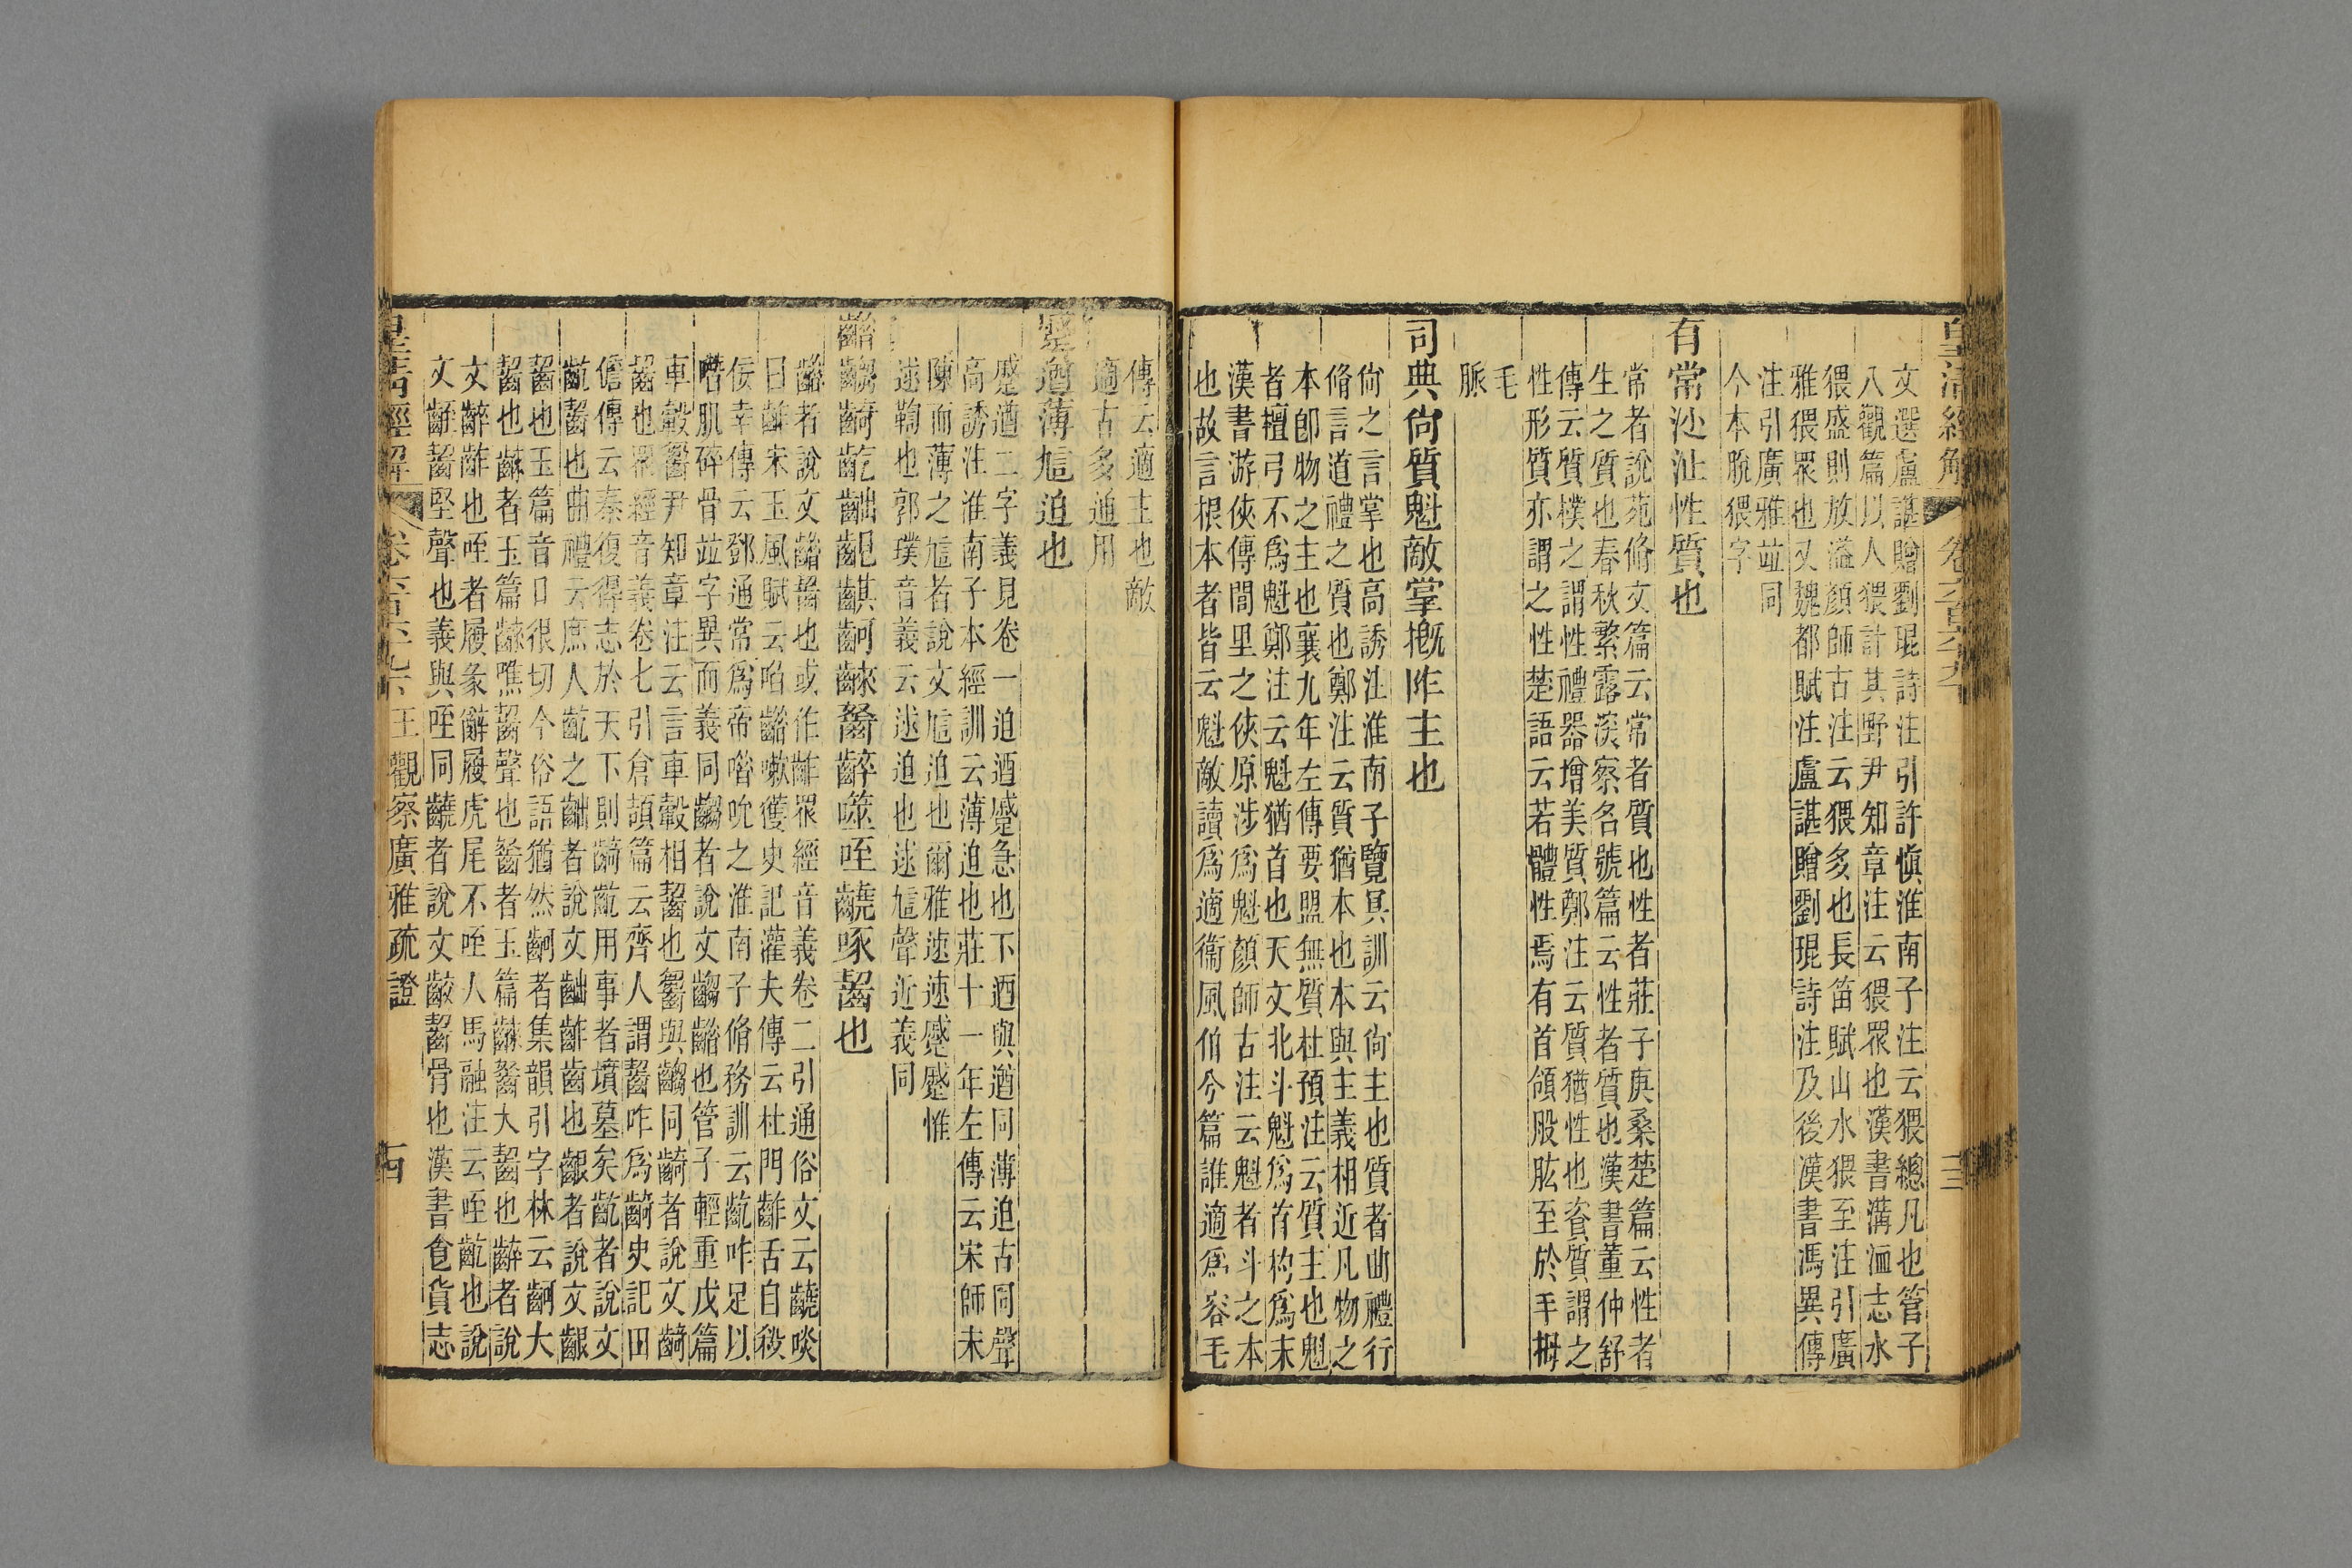 文選盧諶贈劉琨詩注引許愼淮南子注云猥總凡也管子
八觀篇以人猥計其野尹知章注云猥眾也漢書溝洫志水
猥盛則放溢顏師古注云猥多也長笛賦山水猥至注引廣
雅猥眾也又魏都賦注盧諶贈劉琨詩注及後漢書馮異傳
注引廣雅竝同
今本脫猥字
有常㳒沚性質也
常者說苑脩文篇云常者質也性者莊子庚桑楚篇云性者
生之質也春秋繁露深察名號篇云性者質也漢書董仲舒
傳云質樸之謂性禮器增美質鄭注云質猶性也資質謂之
性形質亦謂之性楚語云若體性焉有首領股肱至於手拇
毛
脈
司典尙質魁敵掌摡阼主也
尙之言掌也高誘注淮南子覽冥訓云尙主也質者曲禮行
脩言道禮之質也鄭注云質猶本也本與主義相近凡物之
本卽物之主也襄九年左傳要盟無質杜預注云質主也魁
者檀弓不爲魁鄭注云魁猶首也天文北斗魁爲首杓爲末
漢書游俠傳閭里之俠原涉爲魁顏師古注云魁者斗之本
也故言根本者皆云魁敵讀爲適衞風伯兮篇誰適爲容毛
傳云適主也敵
適古多通用
蹙遒薄䞘迫也
蹙遒二字義見卷一迫迺蹙急也下迺與遒同薄迫古同聲
高誘注淮南子本經訓云薄迫也莊十一年左傳云宋師未
陳而薄之䞘者說文䞘迫也爾雅速速蹙蹙惟
逑鞫也郭璞音義云逑迫也逑䞘聲近義同
齰者說文齰齧也或作齚眾經音義卷二引通俗文云齩啖
曰齚宋玉風賦云啗齰嗽獲史記灌夫傳云杜門齚舌自殺
佞幸傳云鄧通常爲帝唶吮之淮南子脩務訓云齕咋足以
㗲肌碎骨竝字異而義同齺者說文齺齰也管子輕重戊篇
車轂齺尹知章注云言車轂相齧也齺與齺同齮者說文齮
齧也眾經音義卷七引倉頡篇云齊人謂齧咋爲齮史記田
儋傳云秦復得志於天下則齮齕用事者墳墓矣齕者說文
齕齧也曲禮云庶人齕之齜者說文齜齚齒也齦者說文齦
齧也玉篇音口很切今俗語猶然齣者集韻引字林云齣大
文齚齚也咥者履彖辭履虎尾不咥人馬融注云咥齕也說
文齛齧堅聲也義與咥同齩者說文齩齧骨也漢書食貨志
皇清經解 卷六百六十九下 王觀察廣雅疏證